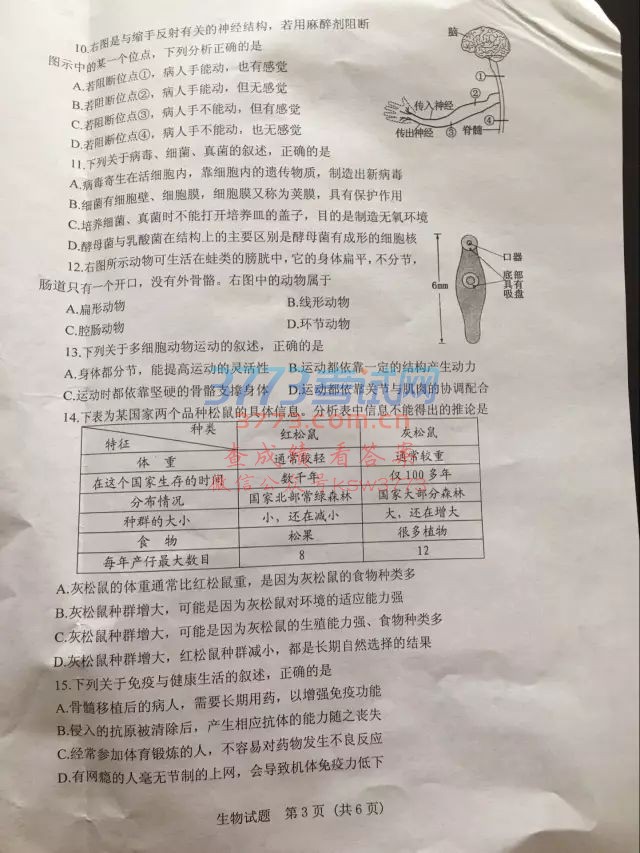 10.右图是与缩手反射有关的神经结构，若用麻醉剂阻断
图示中的某一个位点，下列分析正确的是
A.若阻断位点①，病人手能动，也有感觉
B.若阻断位点②，病人手能动，但无感觉
C.若阻断位点③，病人手不能动，但有感觉
D.若阻断位点④，病人手不能动，也无感觉
脑
①
②
传入神经
传出神经
③
脊髓
④
11.下列关于病毒、细菌、真菌的叙述，正确的是
A.病毒寄生在活细胞内，靠细胞内的遗传物质，制造出新病毒
B.细菌有细胞壁、细胞膜，细胞膜又称为荚膜，具有保护作用
C.培养细菌、真菌时不能打开培养皿的盖子，目的是制造无氧环境
D.酵母菌与乳酸菌在结构上的主要区别是酵母菌有成形的细胞核
12.右图所示动物可生活在蛙类的膀胱中，它的身体扁平，不分节，
肠道只有一个开口，没有外骨骼。右图中的动物属于
A.扁形动物 B.线形动物
C.腔肠动物 D.环节动物
6mm
口器
底部
具有
吸盘
13.下列关于多细胞动物运动的叙述，正确的是
A.身体都分节，能提高运动的灵活性 B.运动都依靠一定的结构产生动力
C.运动时都依靠坚硬的骨骼支撑身体 D.运动都依靠关节与肌肉的协调配合
3773考试网
14.下表为某国家两个品种松鼠的具体信息。分析表中信息不能得出的推论是
3773.com.cn
种类 红松鼠 灰松鼠
特征
体 重 通常较轻 通常较重
查成绩 看答案
在这个国家生存的时间 数千年 仅100多年
分布情况 国家北部常绿森林 国家大部分森林
种群的大小 小，还在减小 大，还在增大
食 物 松果 很多植物
每年产仔最大数目 8 12
A.灰松鼠的体重通常比红松鼠重，是因为灰松鼠的食物种类多
B.灰松鼠种群增大，可能是因为灰松鼠对环境的适应能力强
C.灰松鼠种群增大，可能是因为灰松鼠的生殖能力强、食物种类多
D.灰松鼠种群增大，红松鼠种群减小，都是长期自然选择的结果
15.下列关于免疫与健康生活的叙述，正确的是
A.骨髓移植后的病人，需要长期用药，以增强免疫功能
B.侵入的抗原被清除后，产生相应抗体的能力随之丧失
C.经常参加体育锻炼的人，不容易对药物发生不良反应
D.有网瘾的人毫无节制的上网，会导致机体免疫力低下
生物试题 第3页（共6页）